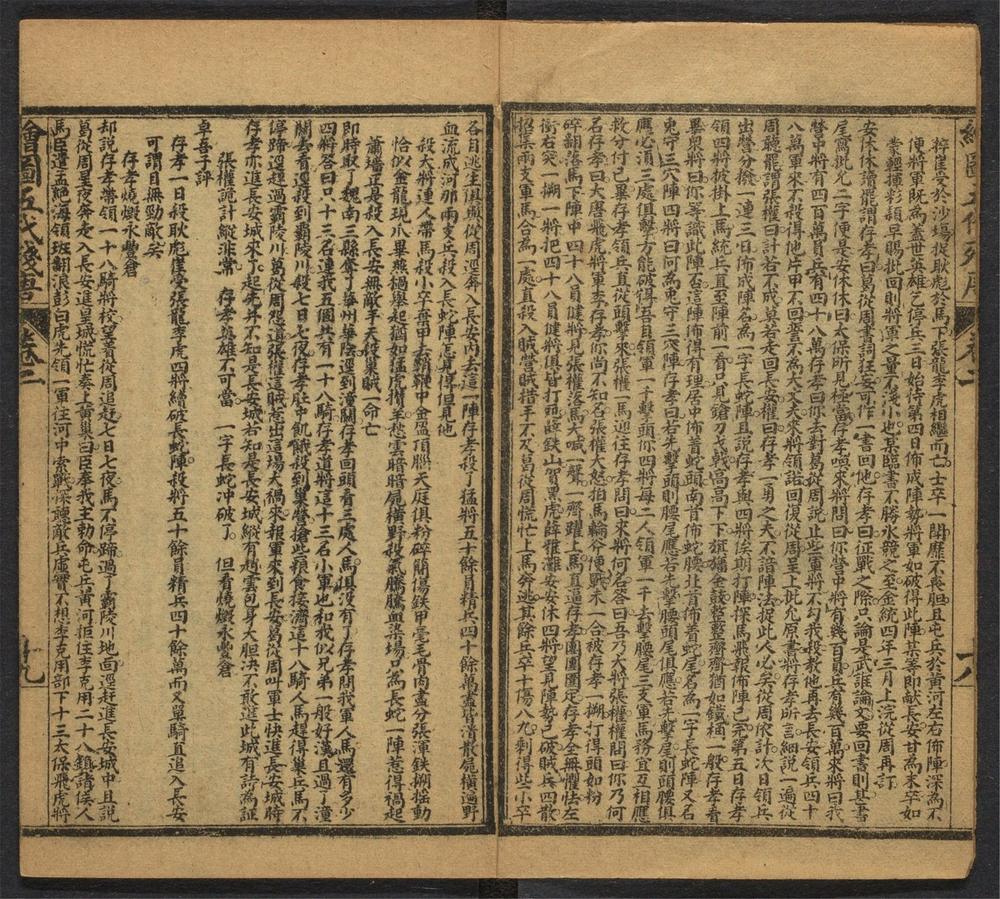 粹崖受於沙場捉耿彪於馬下張龍李虎相繼而亡士卒一聞靡不喪胆且屯兵於黃河左右佈陣深為不
便將軍既為蓋世英雄乞停兵三日始待第四日佈成陣勢將軍如破得此陣其善即献長安甘為末卒如
賽輕揮彩頴早賜批回則將軍之量不淺小也某臨書不勝水兢之至金統四年三月上浣從周再訂
安休休讀罷謂存孝曰葛從周書詞狂妄可作一書回他存孝曰征戰之際只論是武誰論文要回書則甚書
尾寫批允二字便是安休休曰太保所見極當存孝喚來將問曰你營中將有幾百員兵有幾百萬來將曰我
營中將有四百萬員兵有四十八萬存孝曰你去對葛從周説止些軍將不勾我殺教他再去長安領兵四十
八萬軍來不殺得他片甲不回誓不為大丈夫來將領諾回復從周呈上批允原書將存孝所言細説一遍從
周聽罷謂張權曰計若不成莫若走回長安權曰存孝一勇之夫不諳陣法捉此人必矣從周依計次日領兵
出營分撥一連三日佈成陣名為一字長蛇陣且説存孝與四將俟期打陣探馬飛報佈陣已完第五日存孝
領四將披掛上馬統兵直至陣前一看只見鎗刀戈戟高高下下旗旛金鼓整整齊齊猶如鐵桶一般存孝看
畢衆將曰你等識此陣否這陣佈得有理居中佈着蛇頭南首佈蛇腰北首佈着蛇尾名為一字長蛇陣又名
兎守三穴陣四將曰何為兎守三穴陣存孝曰若先擊頭則腰尾應若先擊腰頭尾俱應若先擊尾則頭腰俱
應必須三處俱擊方能破得吾自領軍一千擊頭你四將每二人領軍一千去擊腰尾三支軍馬務宜互相應
救分付已畢存孝領兵直從頭擊來張權一馬迎住存孝問曰來將何名答曰吾乃大將張權權問曰你乃何
名存孝曰大唐飛虎將軍李存孝你尚不知名張權大怒拍馬輪斧便戰未一合被存孝一撾打得頭如粉
碎翻落馬下陣中四十八員健將見張權落馬大喊一聲一齊躍上馬直逼存孝團團圍定存孝全無懼怯左
衝右突一撾一將把四十八員健將俱皆打死薛鉄山賀黑虎薛雅灘安安休四將望見陣勢已破賊兵四散
招集兩支軍馬合為一處直殺入賊營賊措手不及葛從周慌忙上馬奔逃其餘兵卒十傷八九剩得些小卒
十八
各自逃生俱與從周逕奔入長安内去這一陣存孝殺了猛將五十餘員精兵四十餘萬盡皆潰散屍橫遍野
血流成河那兩支兵殺入長蛇陣怎見得但見他
殺大將連人帶馬殺小卒棄甲去霸鞭中金盔頂腦天庭俱粉碎簡傷鉄甲毫毛骨肉盡分張渾鉄撾搖動
恰似金龍現爪畢燕撾舉起猶如猛虎攢羊愁雲暗暗屍橫野殺氣騰騰血染場只為長蛇一陣惹得禍起
蕭墻正是殺入長安無敵手天殺巢賊一命亡
即時取了魏南三縣奪了華州華陰逕到潼關存孝回頭看三處人馬俱沒有了存孝問我軍人馬還有多少
四將答曰只十三名連我五個共有一十八騎存孝道將這十三名小軍也和我似兄弟一般好漢且過了潼
關去看逕殺到霸陵川殺七日七夜存孝肚中飢餓殺到巢營搶些粮食接濟這十八騎人馬趕得巢兵馬不
停蹄逕趕過霸陵川葛從周怨道張權這賊惹出這場大禍來報軍來到長安葛從周叫軍士快進長安城時
存孝亦進長安城來了起先并不知是長安城若知是長安城縱有趙雲包身大胆决不敢進此城有詩為証
張權詭計縱非常　存孝英雄不可當　一字長蛇冲破了　但看燒燬永豐倉
卓吾子評
存孝一日殺耿彪崖受張龍李虎四將續破長蛇陣殺將五十餘員精兵四十餘萬而又單騎直追入長安
可謂目無勁敵矣
存孝燒燬永豐倉
却説存孝帶領一十八騎將校望着從周追趕七日七夜馬不停蹄過了霸陵川地面逕趕進長安城中且說
葛從周星夜奔走入長安進皇城慌忙奏上黃巢曰臣奉我主勅命屯兵黃河拒住李克用二十八鎮諸侯人
馬臣遣孟絶海領班翻浪彭白虎先領一軍往河中索戰探聽敵兵虛實不想李克用部下十三太保飛虎將
繪圖五代殘唐
卷二
十九